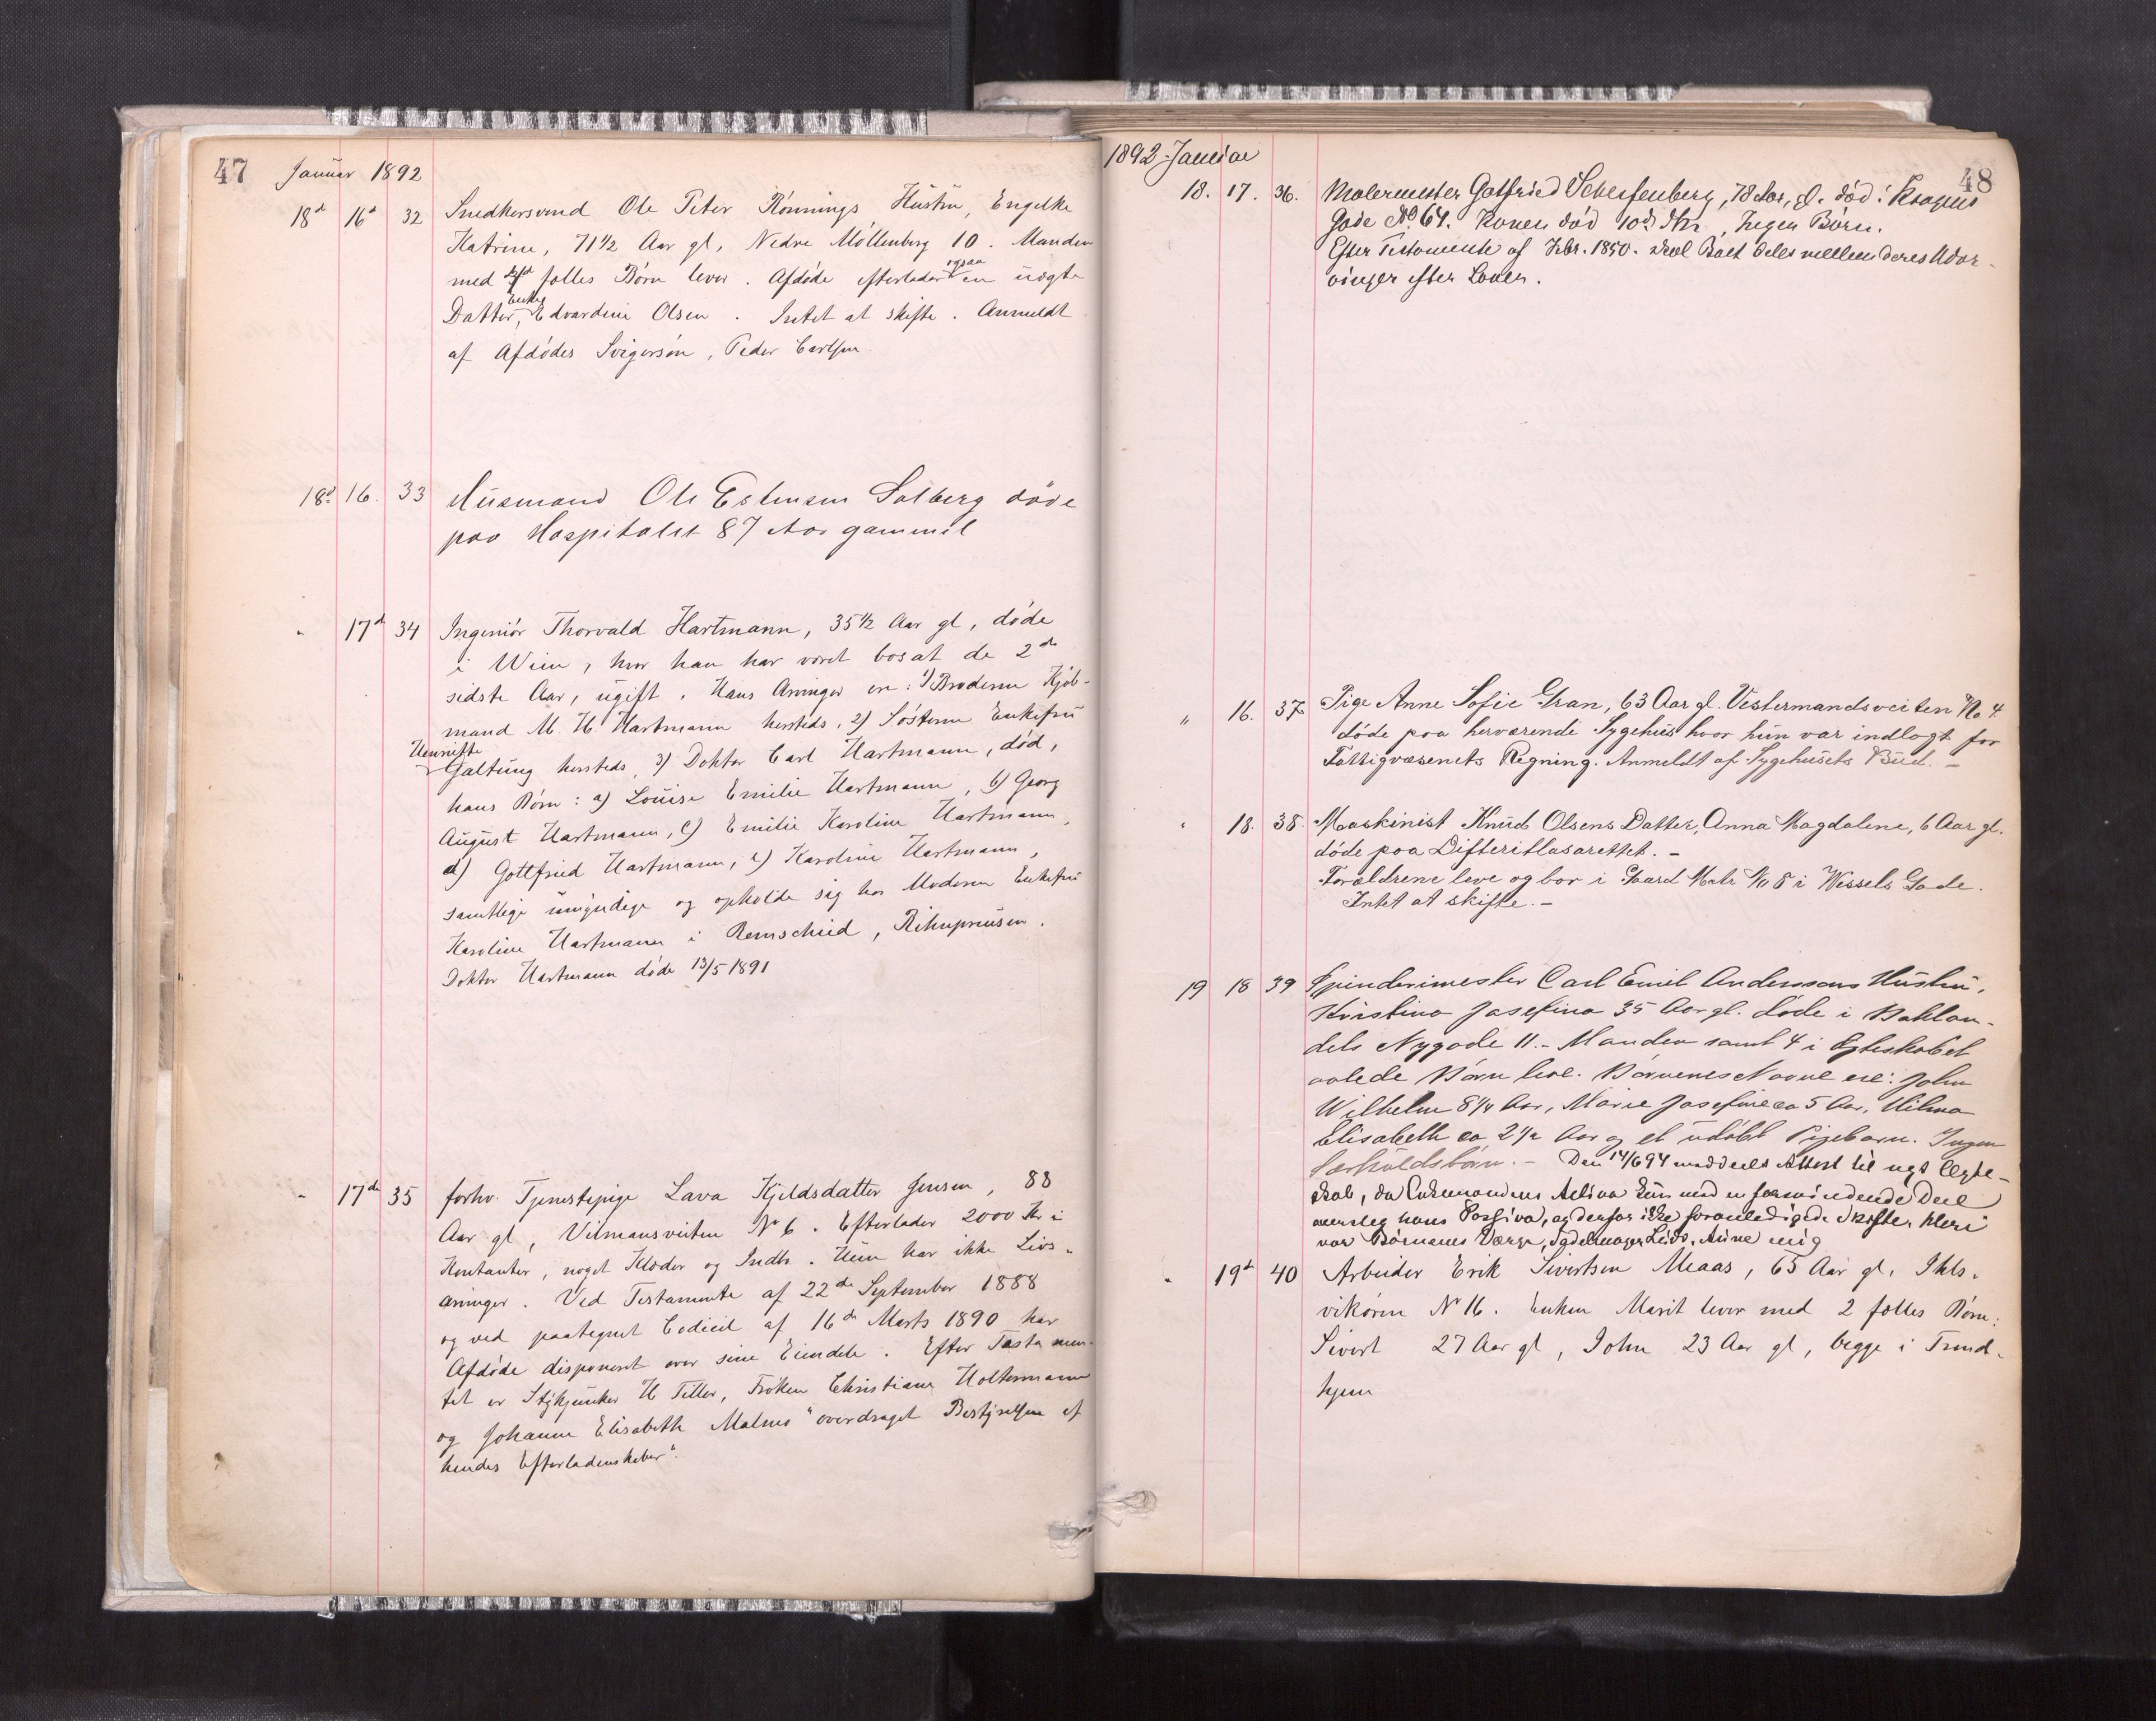 47 Januar 1892
18d 16d 32 Snedkersvend Ole Peter Rönnings Hustru, Engelke
Katrine, 71 1/2 Aar gl, Nedre Möllenberg 10. Manden
med fælles Börn lever. Afdöde efterlader ogsaa en uægte
Datter, Enke Edvardine Olsen. Intet at skifte. Anmeldt
af Afdödes Svigersön, Peder Carlsen.
18d 16. 33 Husmand Ole Estensen Solberg döde
paa Hospitalet 87 Aar gammel
" 17d 34 Ingeniör Thorvald Hartmann, 35 1/2 Aar gl, döde
i Wien, hvor han har været bosat de 2de
sidste Aar, ugift. Hans Arvinger ere: 1) Broderen Kjöb-
mand M. H. Hartmann hersteds, 2) Söstren Enkefru
Henriette Galtung hersteds, 3) Doktor Carl Hartmann, död,
hans Börn: a) Louise Emilie Hartmann, b) Georg
August Hartmann, c) Emilie Karoline Hartmann,
d) Gottfried Hartmann, e) Karoline Hartmann,
samtlige umyndige og opholde sig hos Moderen Enkefru
Karoline Hartmann i Remscheid, Rihnpreusen.
Doktor Hartmann döde 13/5 1891
" 17de 35 forhv. Tjenestepige Lava Kjeldsdatter Jensen, 88
Aar gl, Vemansveiten No 6. Efterlader 2000 Kr i
Kontanter, noget Klæder og Indb. Hun har ikke Livs-
arvinger. Ved Testamente af 22de September 1888
og ved paategnet Codicil af 16de Marts 1890 har
Afdöde disponeret over sine Eiendele. Efter Testamen-
tet er Stykjunker H Tiller, Fröken Christiane Holtermann
og Johanne Elisabeth Malmo "overdraget Bestyrelsen af
hendes Efterladenskaber".
1892 Januar 48
18. 17. 36. Malermester Gotfried Scherfenberg, 78 Aar, gl. död i Kragens
Gade No 64. Konen död, Ingen Börn.
Efter Testamente af Febr. 1850. skal Boet deles mellem deres Udar-
vinger efter Loven.
" 16. 37. Pige Anne Sofie Gran, 63 Aar gl. Vestermandsveiten No 4.
döde paa herværende Sygehus hvor hun var indlagt for
Fattigvæsenets Regning. Anmeldt af Sygehusets Bud. –
" 18. 38. Maskinist Knud Olsens Datter, Anna Magdalene, 6 Aar gl.
döde paa Difteritlasarettet. –
Forældrene leve og bor i Gaard Matr No 8 i Wessels Gade.
Intet at skifte. –
19 18 39 Spinderimester Carl Emil Anderssons Hustru,
Kristina Josefina 35 Aar gl. döde i Baklan-
dets Nygade 11. – Manden samt 4 i Egteskabet
avlede Börn leve. Börnenes Navne ere: John
Wilhelm 8 1/4 Aar, Marie Josefine ca 5 Aar, Hilma
Elisabeth ca 2 1/2 Aar og et udöbt Pigebarn. Ingen
Særkuldsbörn. – Den 14/6 94 meddeelt Attest til nyt Ægte-
skab, da Enkemandens Activa kun med en forsvindende Deel
oversteg hans Passiva, og derfor ikke foranledigede Skifte. Heri
var Börnenes Værge, Sadelmager Ludv. Aune enig
" 19d 40 Arbeider Erik Sivertsen Meaas, 65 Aar gl, Ihls-
vikören No 16. Enken Marit lever med 2 fælles Börn:
Sivert 27 Aar gl, John 23 Aar gl, begge i Trond-
hjem